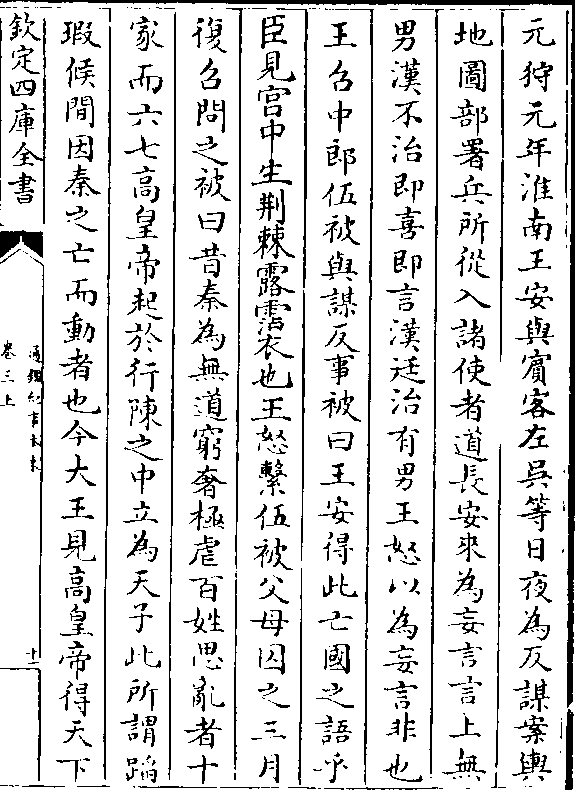 元狩元年淮南王安與賔客左吳等日夜為反謀案輿
地圖部署兵所從入諸使者道長安來為妄言言上無
男漢不治即喜即言漢廷治有男王怒以為妄言非也
王召中郎伍被與謀反事被曰王安得此亡國之語乎
臣見宫中生荆棘露霑衣也王怒繫伍被父母囚之三月
復召問之被曰昔秦為無道窮奢極虐百姓思亂者十
家而六七高皇帝起於行陳之中立為天子此所謂蹈
瑕候間因秦之亡而動者也今大王見高皇帝得天下
欽定四庫全書
通鑑紀事本末
卷三上
十一